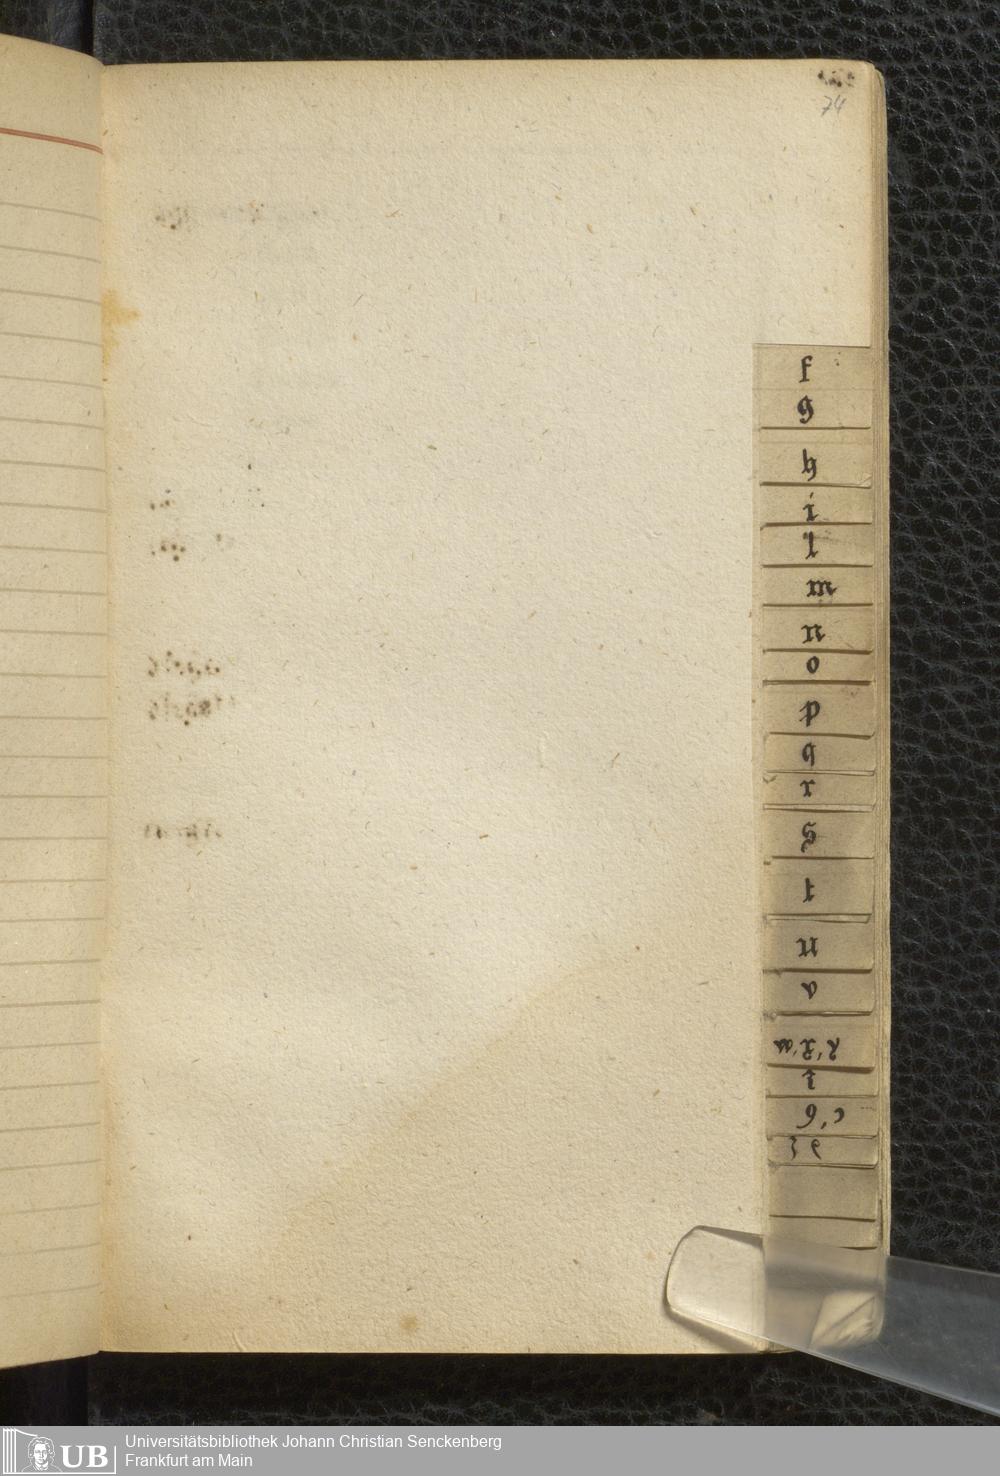 74
f
g
h
i
l
m
n
o
p
q
r
s
t
u
v
UB Universitätsbibliothek Johann Christian Senckenberg
Frankfurt am Main